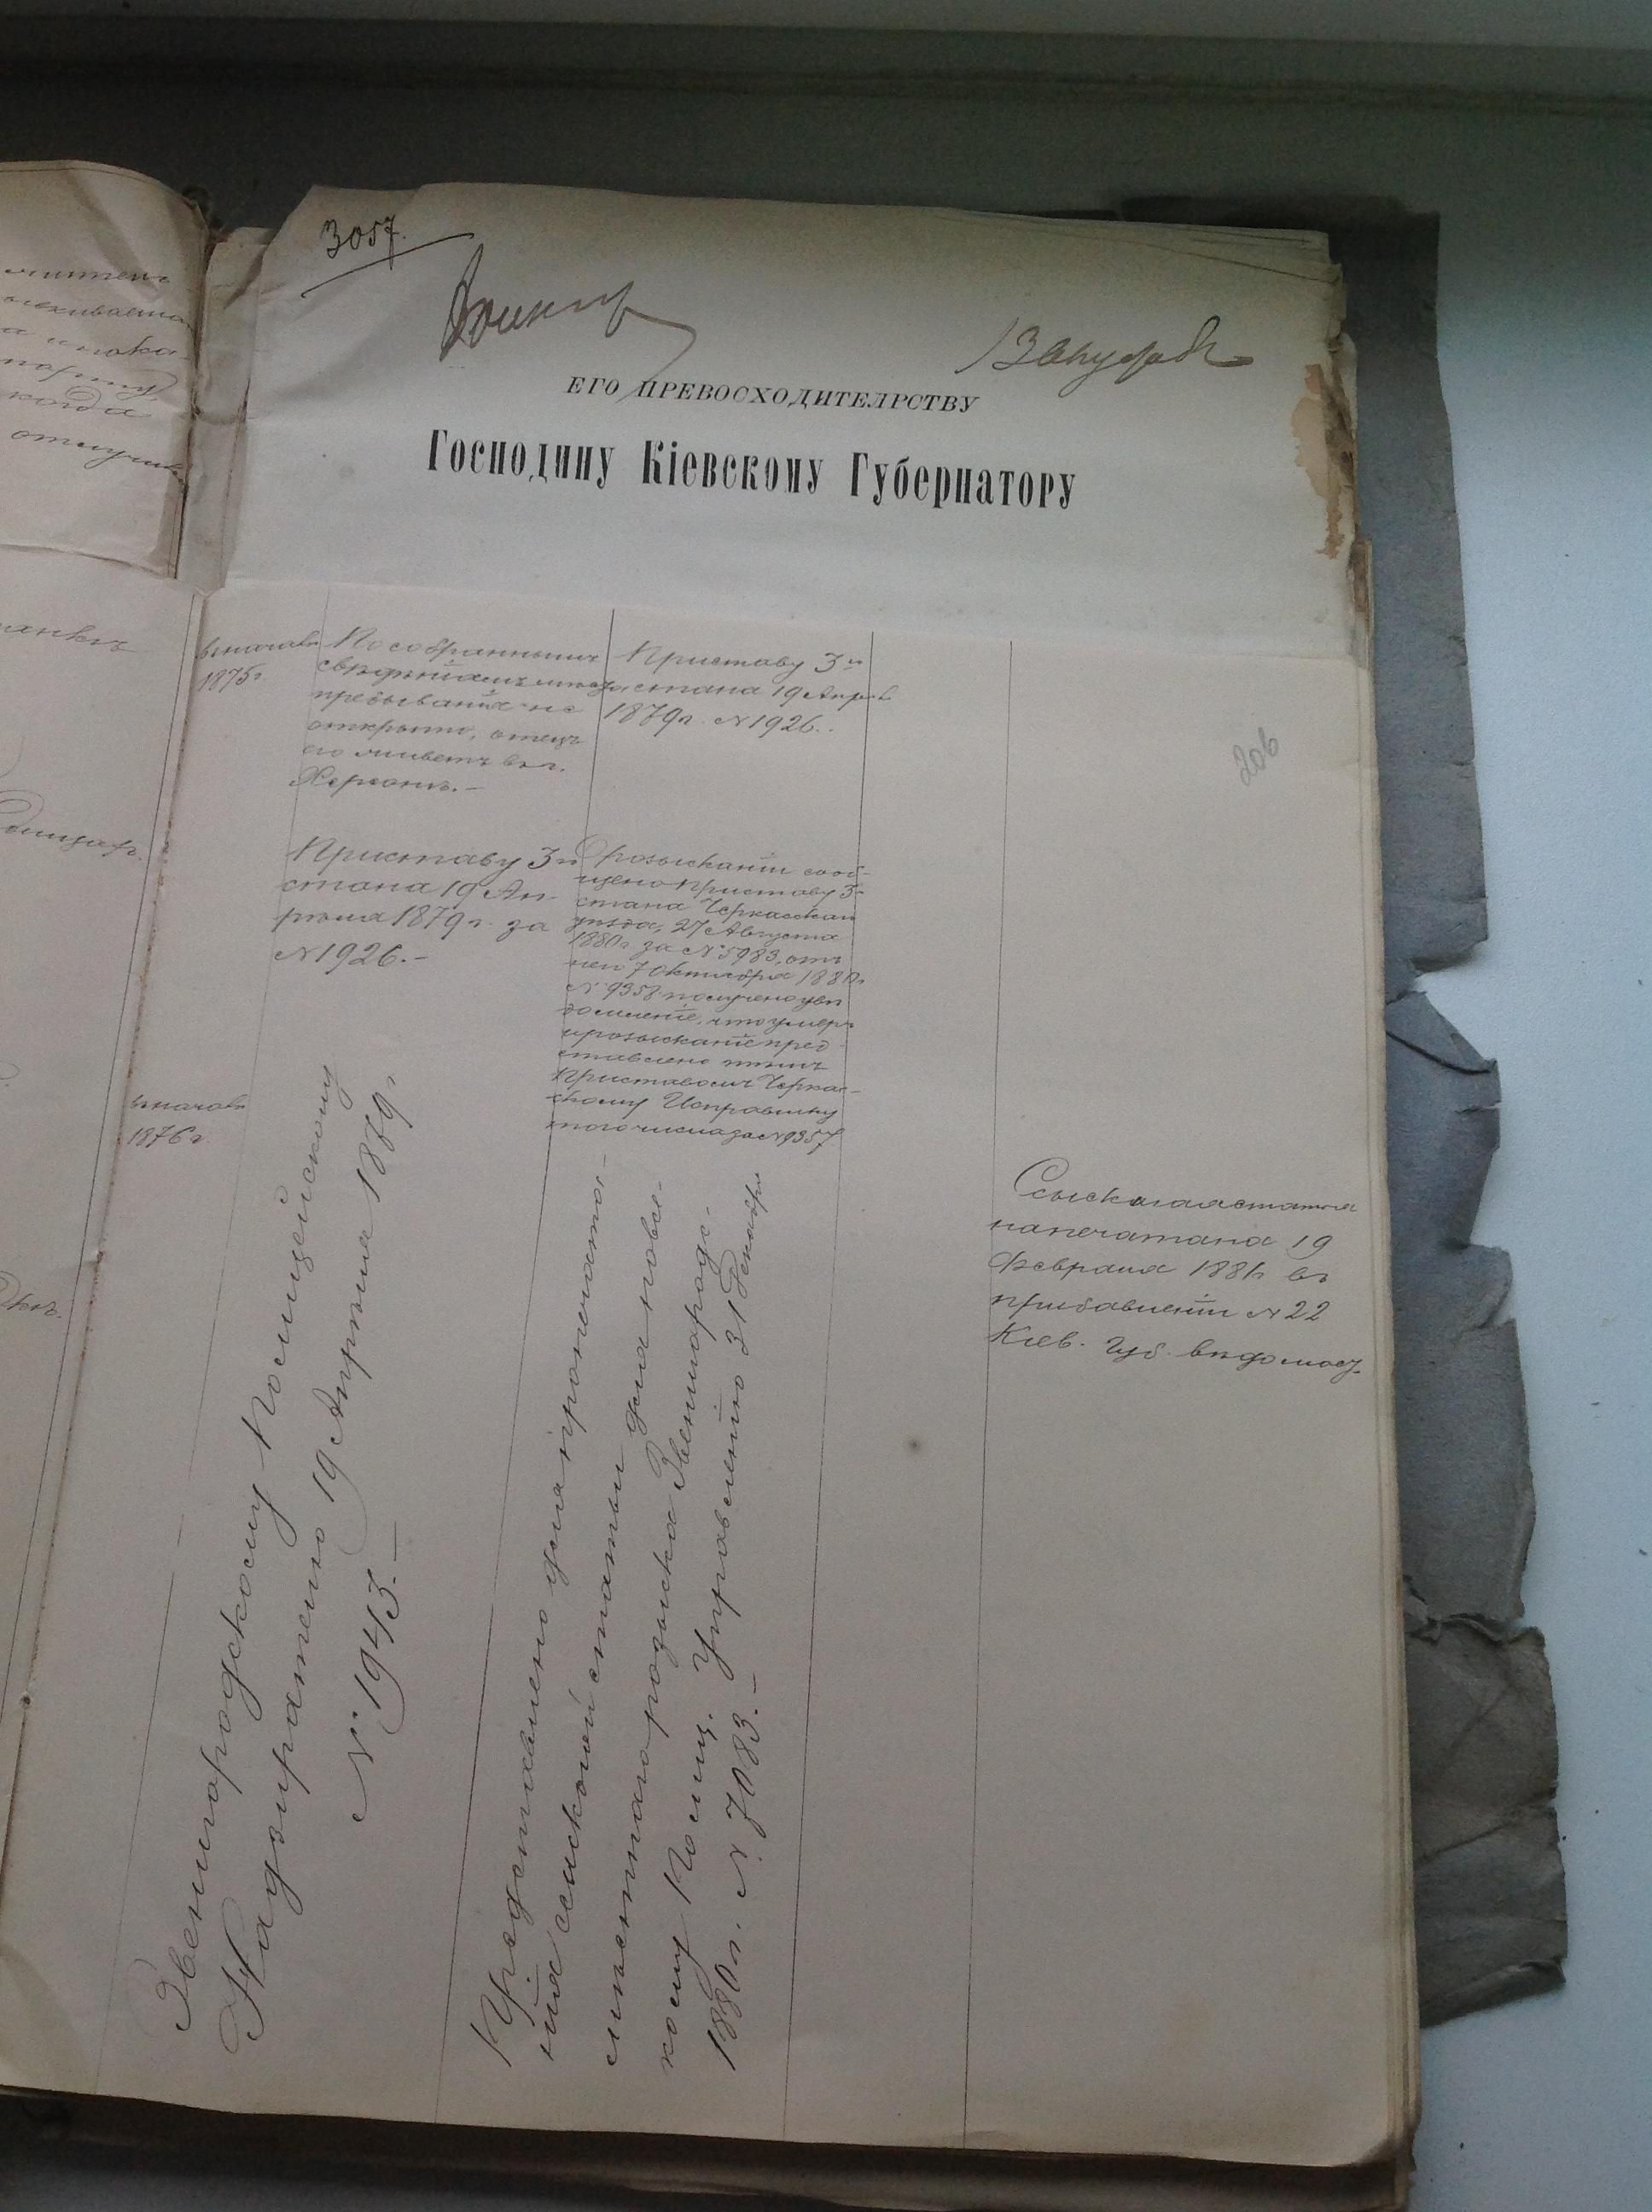 3057.
ЕГО ПРЕВОСХОДИТЕЛЬСТВУ
Господину Кіевскому Губернатору
206
когда
вначалѣ
1875г.
По собраннымъ
свѣдѣніямъ место
пребыванія не
открыто, отецъ
его живетъ въ г.
Херсонѣ.—
Приставу 3го
стана 19 Апрѣля
1879г. N 1926.
Приставу 3го
стана 19 Ап-
рѣля 1879г. за
N 1926.—
О розысканіи сооб-
щено Приставу 3го
стана Черкасскаго
уѣзда, 27 Августа
1880г. за N 5983, отъ
него 7 Октября 1880г.
N 9358 получено увѣ
домленіе, что умеръ
и розысканіе пред
ставлено тѣмъ
Приставомъ Черкас-
скому Исправнику
того числа за N 9357
вначалѣ
1876г.
Звенигородскому Полицейскому
Надзирателю 19 Апрѣля 1879г.
N 1943.—
Представлено для пропечата-
нія сыскной статьи для повсе-
мѣстнаго розыска Звенигородс-
кому Полиц. Управленію 31 Декабря
1880г. N. 7083.—
Сыскная статья
напечатана 19
Февраля 1881г въ
прибавленіи N 22
Кіев. Губ. вѣдомост.